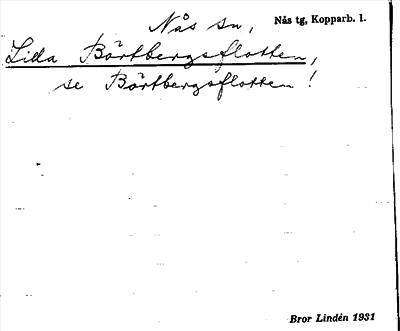 Nås sn, Nås tg, Kopparb. l.
Lida Börtbergsflotten,
se Börtbergsflotten!
Bror Lindén 1931